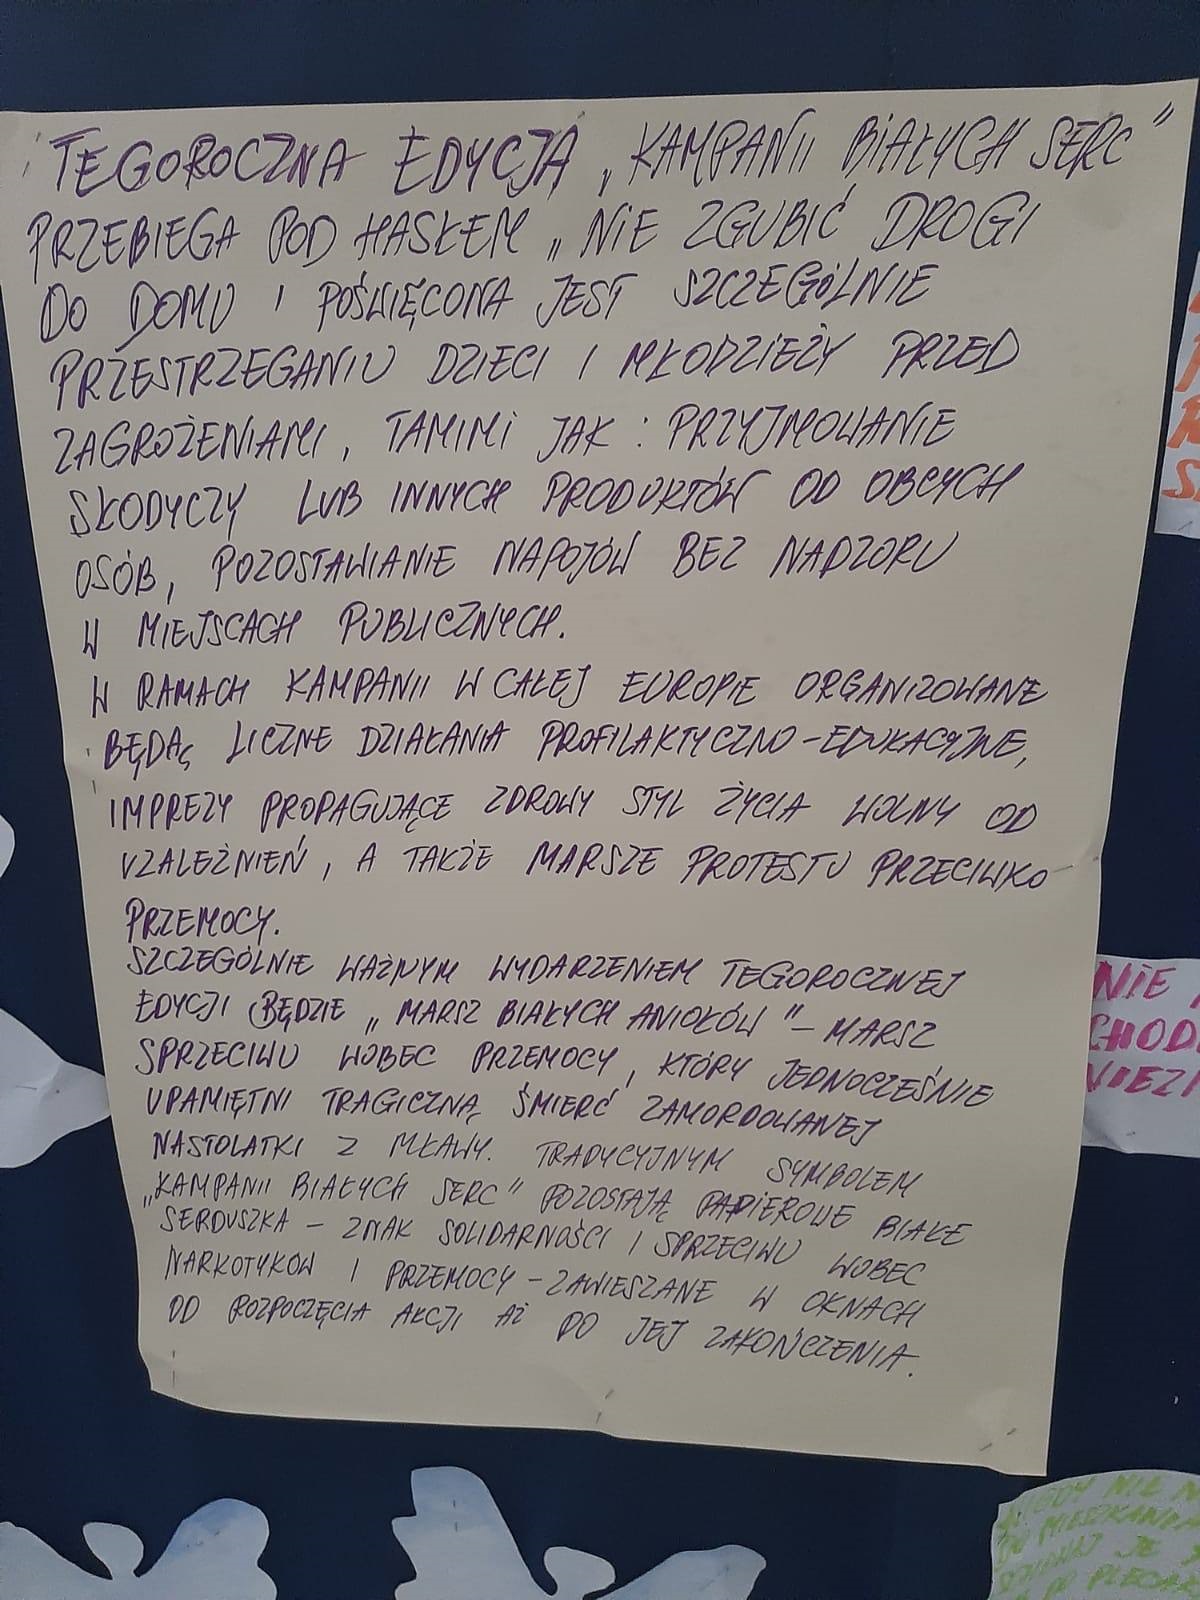 TEGOROCZNA EDYCJA „KAMPANII BIAŁYCH SERC"
PRZEBIEGA POD HASŁEM „NIE ZGUBIĆ DROGI
DO DOMU" I POŚWIĘCONA JEST SZCZEGÓLNIE
PRZESTRZEGANIU DZIECI I MŁODZIEŻY PRZED
ZAGROŻENIAMI, TAMIMI JAK: PRZYJMOWANIE
SŁODYCZY LUB INNYCH PRODUKTÓW OD OBCYCH
OSÓB, POZOSTAWIANIE NAPOJÓW BEZ NADZORU
W MIEJSCACH PUBLICZNYCH.
W RAMACH KAMPANII W CAŁEJ EUROPIE ORGANIZOWANE
BĘDĄ LICZNE DZIAŁANIA PROFILAKTYCZNO-EDUKACYJNE,
IMPREZY PROPAGUJĄCE ZDROWY STYL ŻYCIA WOLNY OD
UZALEŻNIEŃ, A TAKŻE MARSZE PROTESTU PRZECIWKO
PRZEMOCY.
SZCZEGÓLNIE WAŻNYM WYDARZENIEM TEGOROCZNEJ
EDYCJI BĘDZIE „MARSZ BIAŁYCH ANIOŁÓW" – MARSZ
SPRZECIWU WOBEC PRZEMOCY, KTÓRY JEDNOCZEŚNIE
UPAMIĘTNI TRAGICZNĄ ŚMIERĆ ZAMORDOWANEJ
NASTOLATKI Z MŁAWY. TRADYCYJNYM SYMBOLEM
„KAMPANII BIAŁYCH SERC" POZOSTAJĄ PAPIEROWE BIAŁE
SERDUSZKA – ZNAK SOLIDARNOŚCI I SPRZECIWU WOBEC
NARKOTYKÓW I PRZEMOCY – ZAWIESZANE W OKNACH
OD ROZPOCZĘCIA AKCJI AŻ DO JEJ ZAKOŃCZENIA.
NIE